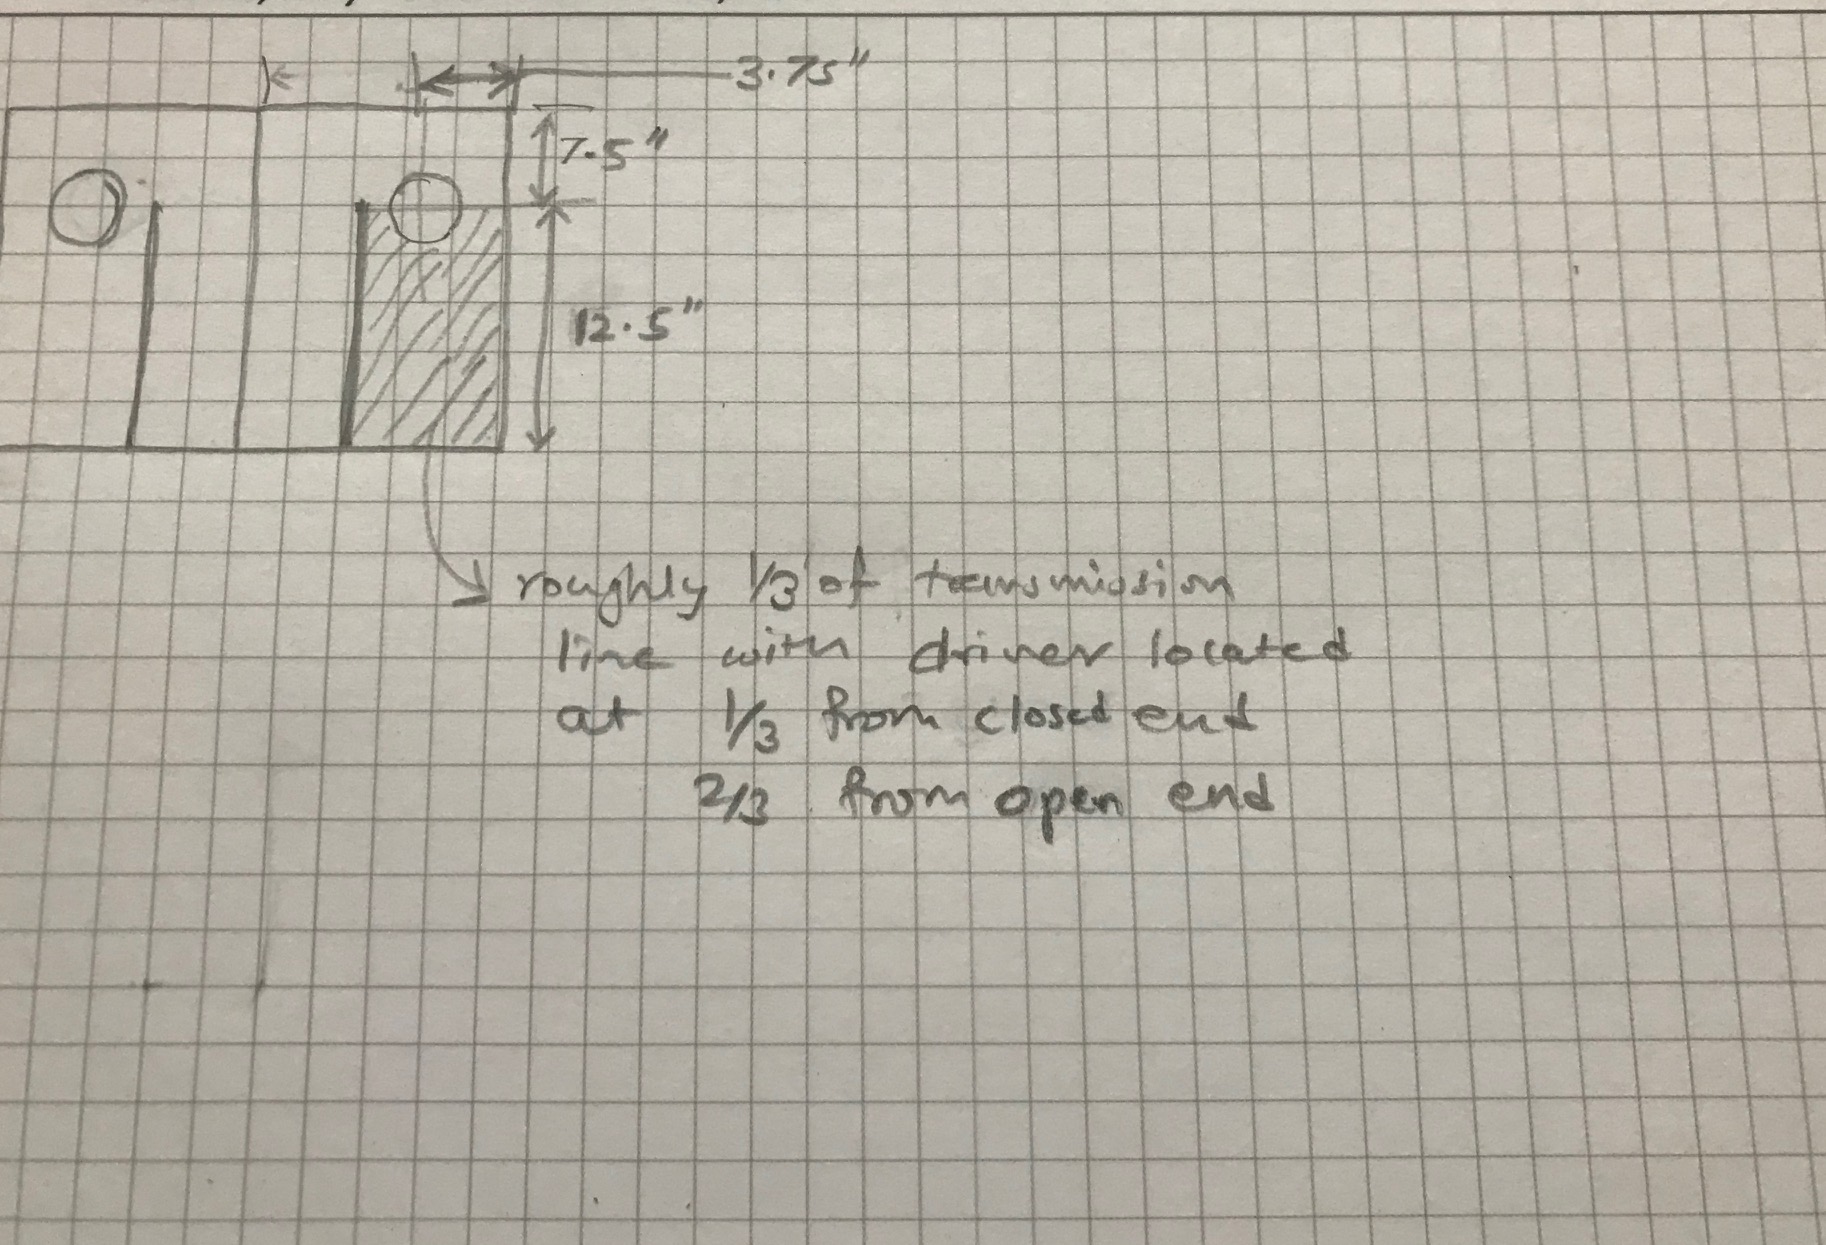 3.75"
7.5"
12.5"
roughly 1/3 of transmission
line with driver located
at 1/3 from closed end
2/3 from open end